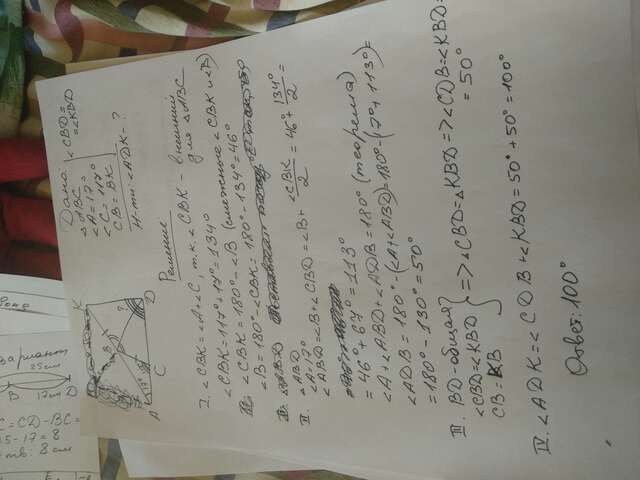 вариант
25 см
B 17 см D
C = CD - BC =
5 - 17 = 8
8 см
K
B
?
17°
A
C
D
Дано:
△ABC
∠A = 17°
∠C = 117°
CB = BK
∠CBD =
= ∠KBD
Н-ти: ∠ADK - ?
Решение
I. ∠CBK = ∠A + ∠C, т.к. ∠CBK - внешний
для △ABC
∠CBK = 117° + 17° = 134°
∠CBK = 180° - ∠B (смежные ∠CBK и ∠B)
∠B = 180° - ∠CBK = 180° - 134° = 46°
II. △ABD
∠A = 17°
∠ABD = ∠B + ∠CBD = ∠B + ∠CBK/2 = 46° + 134°/2 =
= 46° + 67° = 113°
∠A + ∠ABD + ∠ADB = 180° (теорема)
∠ADB = 180° - (∠A + ∠ABD) = 180° - (17° + 113°) =
= 180° - 130° = 50°
III. BD - общая
∠CBD = ∠KBD
CB = KB
=> △CBD = △KBD => ∠CDB = ∠KBD =
= 50°
IV. ∠ADK = ∠CDB + ∠KBD = 50° + 50° = 100°
Ответ: 100°